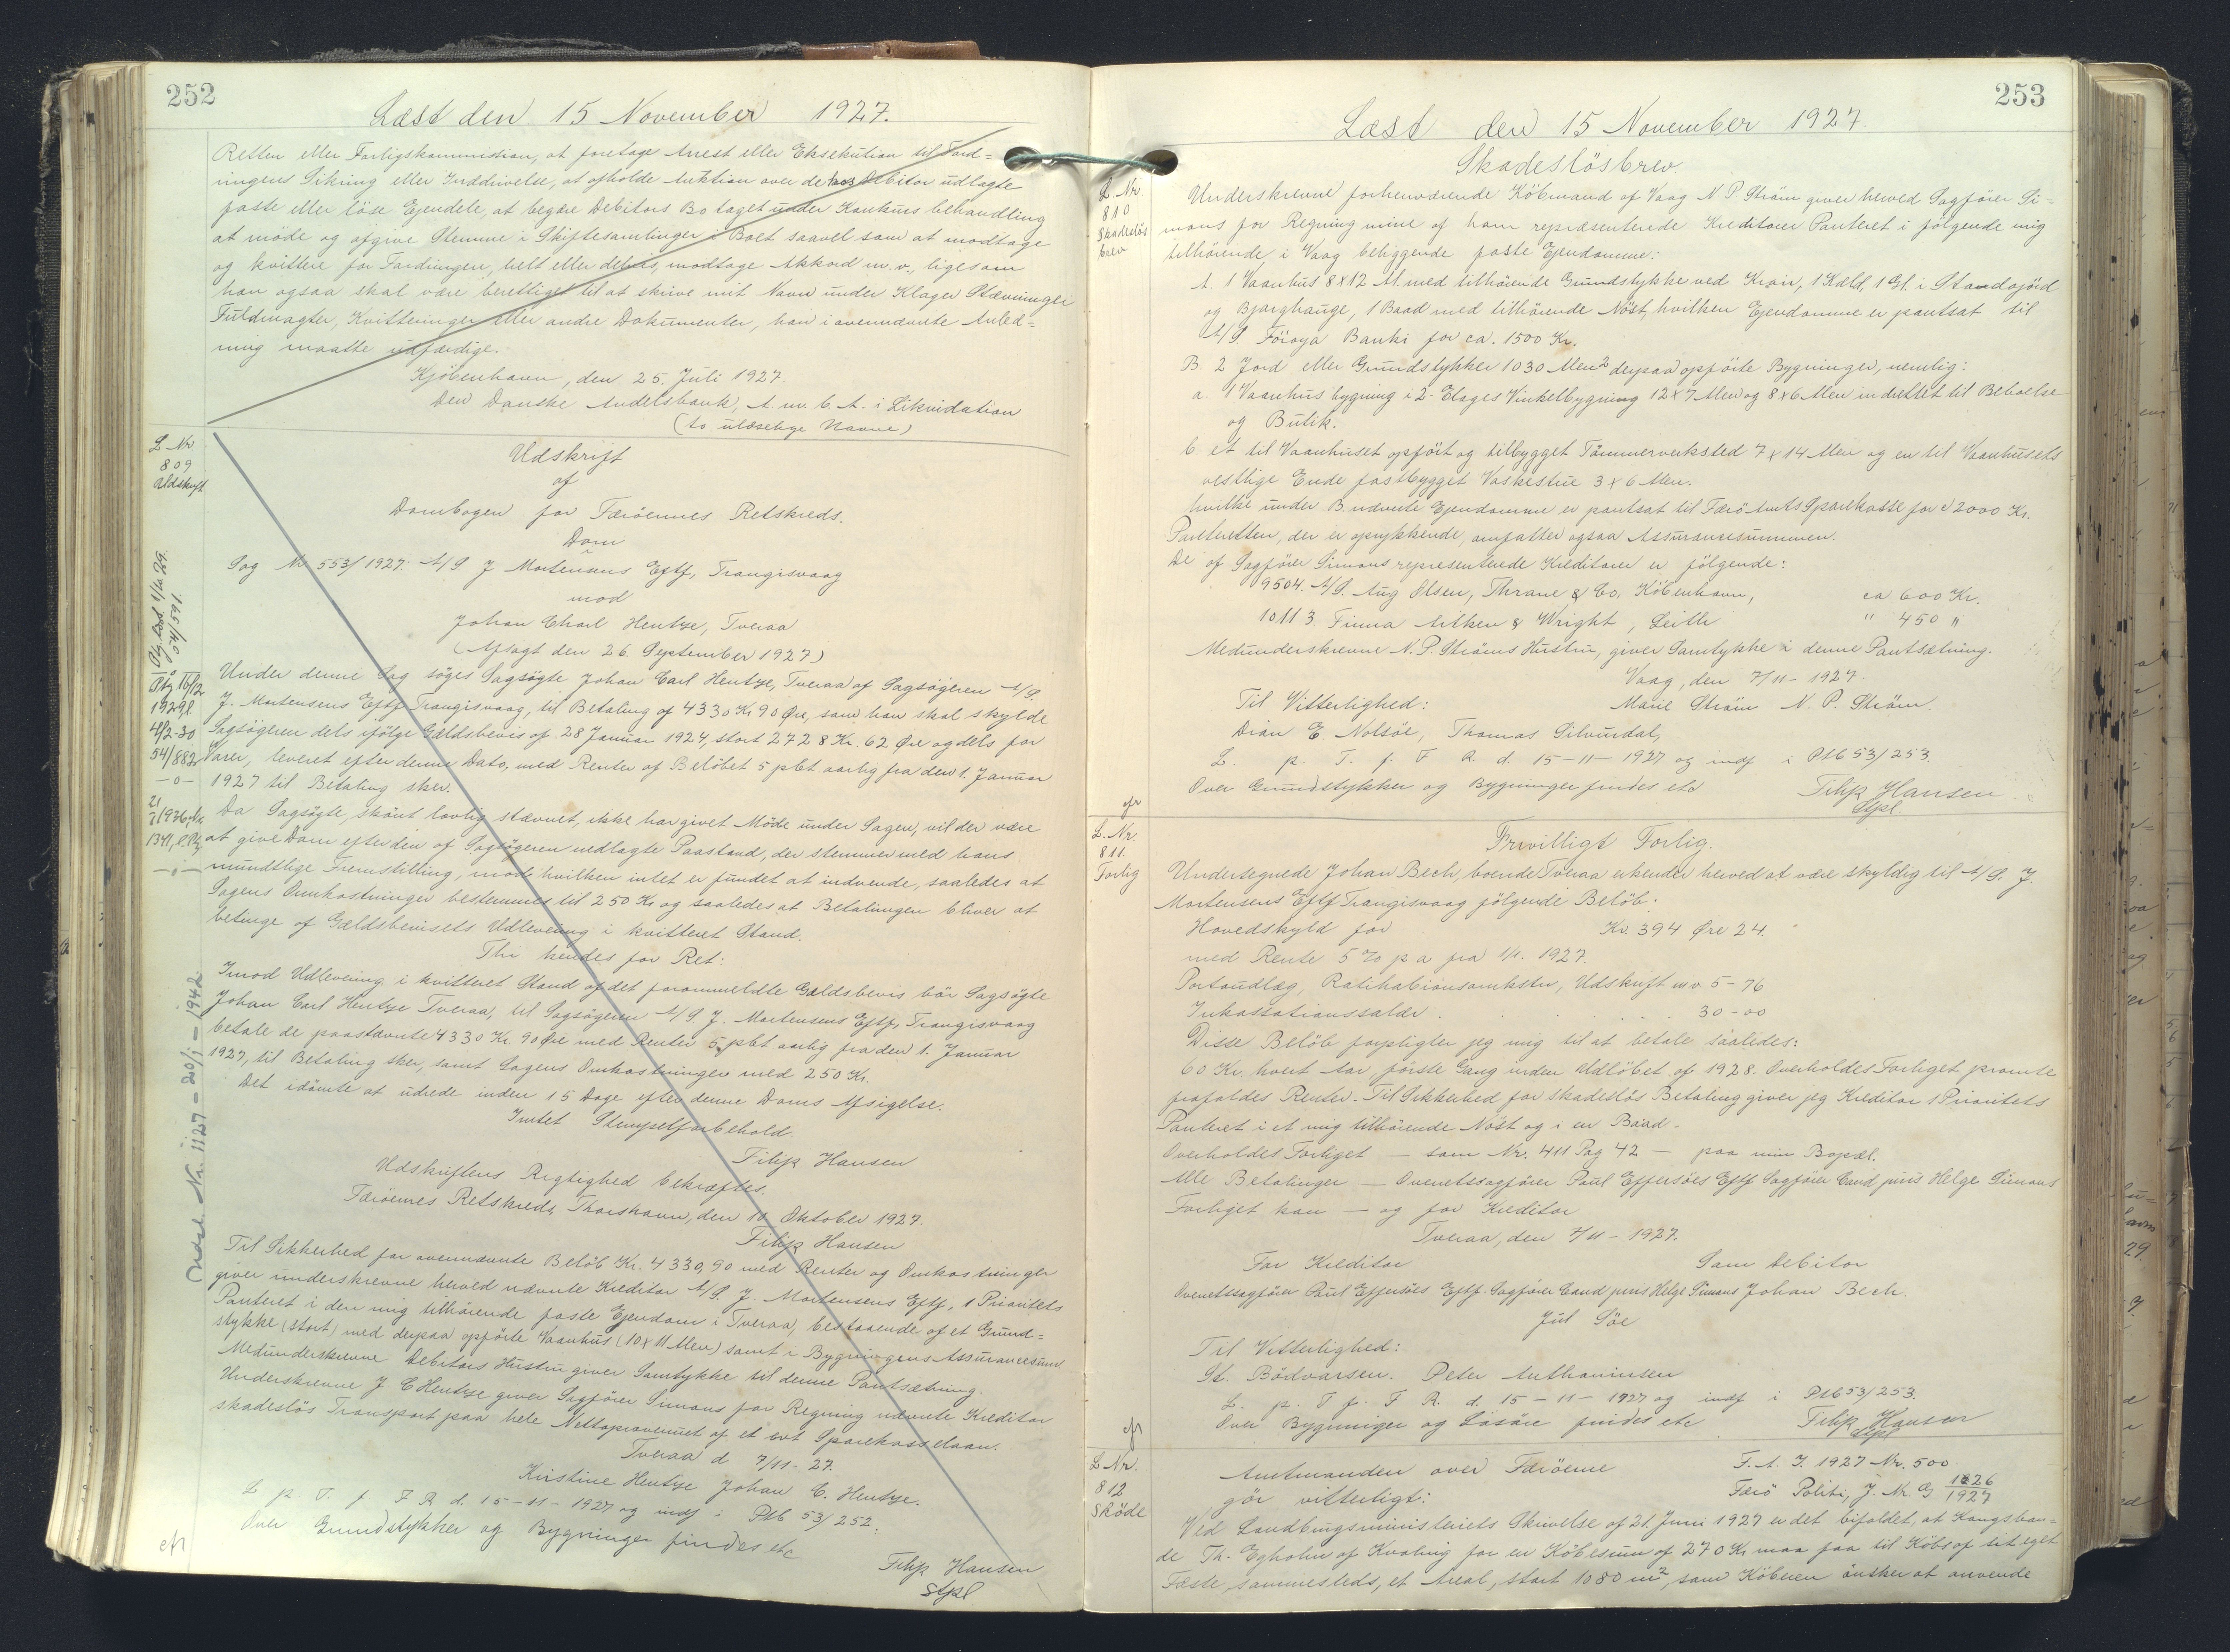 252
Læst den 15 November 1927.
Retten eller Forligskommission, at foretage Arrest eller Eksekution til Ford=
ringens Sikring eller Inddrivelse, at afholde Auktion over de hos Debitor udlagte
faste eller löse Ejendele, at begære Debitors Bo taget under Konkurs behandling
at möde og afgive Stemme i Skiftesamlinger i Boet saavel som at modtage
og kvittere for Fordringen, helt eller delvis, modtage Akkord m.v., ligesom
han ogsaa skal være berettiget til at skrive mit Navn under Klager Stævninger
Fuldmagter, Kvitteringer eller andre Dokumenter, han i ovennævnte Anled=
ning maatte udfærdige.
Kjöbenhavn, den 25. Juli 1927.
Den Danske Andelsbank, A. m. b. A. i Likvidation
(to ulæselige Navne)
L. Nr.
809
Udskrift
Udskrift
af
Dombogen for Færöernes Retskreds.
Dom
Sag Nr 553/1927: A/S J Mortensens Eftf, Trangisvaag
mod
Johan Charl Hentze, Tveraa
(Afsagt den 26 September 1927)
Under denne Sag söges Sagsögte Johan Carl Hentze, Tveraa af Sagsögeren A/S.
J. Mortensens Eftf Trangisvaag, til Betaling af 4330 Kr 90 Øre, som han skal skylde
Sagsögeren dels ifölge Gældsbevis af 28 Januar 1924, stort 2728 Kr. 62 Øre og dels for
Varer, leveret efter denne Dato, med Renter af Belöbet 5 pCt. aarlig fra den 1. Januar
1927 til Betaling sker.
Da Sagsögte, skönt lovlig stævnet, ikke har givet Möde under Sagen, vil der være
at give Dom efter den af Sagsögeren nedlagte Paastand, der stemmer med hans
mundtlige Fremstilling, mod hvilken intet er fundet at indvende, saaledes at
Sagens Omkostninger bestemmes til 250 Kr og saaledes at Betalingen bliver at
betinge af Gældsbevisets Udlevering i kvitteret Stand.
Thi kendes for Ret:
Imod Udlevering i kvitteret Stand af det forommeldte Gældsbevis bör Sagsögte
Johan Carl Hentze Tveraa, til Sagsögeren A/S. J. Mortensens Eftf, Trangisvaag
betale de paastævnte 4330 Kr. 90 Øre med Renter 5 pCt aarlig fra den 1. Januar
1927, til Betaling sker, samt Sagens Omkostninger med 250 Kr.
Det idömte at udrede inden 15 Dage efter denne Doms Afsigelse.
Intet Stempelforbehold.
Filip Hansen
Udskriftens Rigtighed bekræftes.
Færöernes Retskreds, Thorshavn, den 10 Oktober 1927.
Filip Hansen
Til Sikkerhed for ovennævnte Belöb Kr. 4330,90 med Renter og Omkostninger
giver underskrevne herved nævnte Kreditor A/S. J. Mortensens Eftf, 1 Prioritets
Panteret i den mig tilhörende faste Ejendom i Tveraa, bestaaende af et Grund=
stykke (stort) med derpaa opförte Vaanhus (10 x 11 Alen) samt i Bygningens Assurancesum.
Medunderskrevne Debitors Hustru giver Samtykke til denne Pantsætning.
Underskrevne J C Hentze giver Sagförer Simons for Regning nævnte Kreditor
skadeslös Transport paa hele Nettoprovenuet af et evt Sparekasselaan.
Tveraa d 7/11-27.
Kirstine Hentze Johan C. Hentze.
L p T. f F R d. 15-11-1927 og indf i Ptb 53/252.
Over Grundstykker og Bygninger findes etc
cfr
Filip Hansen
Stpl
Ptg 16/12
1929 l.
4/2-30
54/882
-o-
1341, l.
Indst. Nr. 1127 = 20/1 - 1942
253
Læst den 15 November 1927.
Skadeslösbrev.
L. Nr.
810
Skadeslös
brev
Underskrevne forhenværende Köbmand af Vaag N. P. Ström giver herved Sagförer Si=
mons for Regning mine af ham repræsenterede Kreditorer Panteret i fölgende mig
tilhörende, i Vaag beliggende faste Ejendomme:
A. 1 Vaanhus 8x12 Al. med tilhörende Grundstykke ved Krair, 1 Kdld, 1 Gl. i Standajörd
og Bjarghauge, 1 Baad med tilhörende Nöst, hvilken Ejendomme er pantsat til
A/S Föroya Banki for ca. 1500 Kr.
B. 2 Jord eller Grundstykker 1030 Alen² derpaa opförte Bygninger, nemlig:
a. 1 Vaanhusbygning i 2 Etages Vinkelbygning 12x7 Alen og 8x6 Alen indrettet til Beboelse
og Butik.
b. et til Vaanhuset opfört og tilbygget Tömmerværksted 7x14 Alen og en til Vaanhusets
vestlige Ende fastbygget Vaskestue 3x6 Alen.
hvilke under B. nævnte Ejendomme er pantsat til Færö Amts Sparekasse for 12000 Kr.
Panteretten, der er oprykkende, omfatter ogsaa Assurancesummen.
De af Sagförer Simons repræsenterede Kreditorer er fölgende:
9504. A/S. Aug Olsen, Thrane & Co. Köbenhavn, ca 600 Kr.
10113. Firma Aitken & Wright, Leith " 450 "
Medunderskrevne N. P. Ströms Hustru, giver Samtykke i denne Pantsætning.
Vaag, den 7/11-1927.
Til Vitterlighed: Marie Ström N. P. Ström.
Dion E. Nolsöe, Thomas
L. p. T. f. F R. d. 15-11-1927 og indf i Ptb 53/253.
Over Grundstykker og Bygninger findes etc Filip Hansen
cfr Stpl.
L. Nr.
811.
Forlig
Frivilligt Forlig.
Undertegnede Johan Bech, boende Tveraa erkender herved at være skyldig til A/S. J.
Mortensens Eftf Trangisvaag fölgende Belöb:
Hovedskyld for Kr. 394 Øre 24.
med Rente 5 % p a fra 1/1. 1927.
Portoudlæg, Ratihabionsomkstn, Udskrift m.v. 5-76
Inkassationssalær . . . . . 30-00
Disse Belöb forpligter jeg mig til at betale saaledes:
60 Kr. hvert Aar, förste Gang inden Udlöbet af 1928. Overholdes Forliget promte
frafaldes Renter. Til Sikkerhed for skadeslös Betaling giver jeg Kreditor 1 Prioritets
Panteret i et mig tilhörende Nöst og i en Baad.
Overholdes Forliget — som Nr. 411 Pag 42 — paa min Bopæl.
Alle Betalinger — Overretssagförer Poul Effersöes Eftf Sagförer Cand juris Helge Simons
Forliget kan — og for Kreditor
Tveraa, den 7/11-1927.
For Kreditor Som Debitor
Overretssagförer Poul Effersöes Eftf. Sagförer Cand juris Helge Simons Johan Bech.
Jul Söe
Til Vitterlighed:
St. Bödvarsen. Peter Anthoniusen
L. p. T f. F R. d. 15-11-1927 og indf i Ptb 53/253.
Over Bygninger og Lösöre findes etc Filip Hansen
cfr Stpl
L. Nr.
812
Sköde
Amtmanden over Færöerne F. A. J. 1927 Nr. 500.
gör vitterligt: Færö Politi, J. Nr. G 1826/1927
Ved Landbrugsministeriets Skrivelse af 21. Juni 1927 er det bifaldet, at Kongsbon=
de Th. Egholm af Kvalvig for en Köbesum af 270 Kr maa faa til Köbs af sit eget
Fæste, sammesteds, et Areal, stort 1080 m², som Köberen önsker at anvende